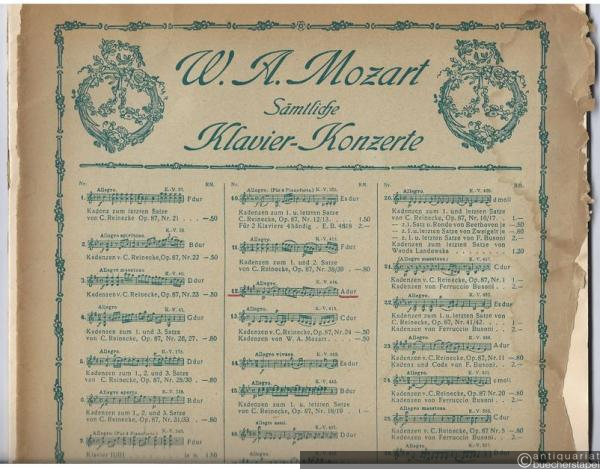 W. A. Mozart
Sämtliche
Klavier-Konzerte
Nr. RM.
Allegro. K.-V. 37.
1. F dur
Kadenz zum letzten Satze
von C. Reinecke Op. 87, Nr. 21 . —.50
Allegro spiritoso. K.-V. 39.
2. B dur
Kadenzen v. C. Reinecke, Op. 87, Nr. 22 —.50
Allegro maestoso. K.-V. 40.
3. D dur
Kadenzen v. C. Reinecke, Op. 87, Nr. 23 —.50
Allegro. K.-V. 41.
4. G dur
Kadenzen zum 1. und 3. Satze
von C. Reinecke, Op. 87, Nr. 26, 27.
Allegro. K.-V. 175.
5. D dur
Kadenzen zum 1., 2. und 3. Satze
von C. Reinecke, Op. 87, Nr. 28/30
Allegro aperto. K.-V. 238.
6. B dur
Kadenzen zum 1., 2. und 3. Satze
von C. Reinecke, Op. 87, Nr. 31/33
7. F dur
Nr. RM.
Allegro. K.-V. 365.
10. Es dur
Kadenzen zum 1. u. letzten Satze
von C. Reinecke, Op. 87, Nr. 12/13 . 1.50
Für 2 Klaviere 4händig . E. B. 4819
Allegro. K.-V. 413.
11. F dur
Kadenzen zum 1. und 2. Satze
von C. Reinecke, Op. 87, Nr. 38/39 . —.80
K.-V. 414.
12. A dur
Allegro. K.-V. 415.
13. C dur
Kadenzen v. C. Reinecke, Op. 87, Nr. 24 —.50
Kadenzen von W. A. Mozart
Allegro vivace. K.-V. 449.
14. Es dur
Allegro. K.-V. 450.
15. B dur
Kadenzen zum 1. u. letzten Satze
von C. Reinecke, Op. 87, Nr. 18/19
Nr. RM.
Allegro. K.-V. 466.
20. d moll
Kadenzen zum 1. und letzten Satze
von C. Reinecke, Op. 87, Nr. 16/17 . 1.—
Kadenzen zum letzten Satze von
Wanda Landowska 1.20
Allegro maestoso.
21. C dur
Kadenzen v. C. Reinecke, Op. 87, Nr. 1
Kadenzen von Ferruccio Busoni
Allegro.
22. Es dur
Kadenzen zum 1. u. letzten Satze von
C. Reinecke, Op. 87, Nr. 41/42
Kadenzen von Ferruccio Busoni
Allegro.
23. A dur
Kadenzen v. C. Reinecke, Op. 87, Nr. 11
Kadenz und Coda von F. Busoni
Allegro.
24. c moll
Kadenzen v. C. Reinecke, Op. 87, Nr. 20
Kadenzen von Ferruccio Busoni
Allegro maestoso.
25. C dur
Kadenzen v. C. Reinecke, Op. 87, Nr. 5
Kadenzen von Ferruccio Busoni
© antiquariat
buecherstapel